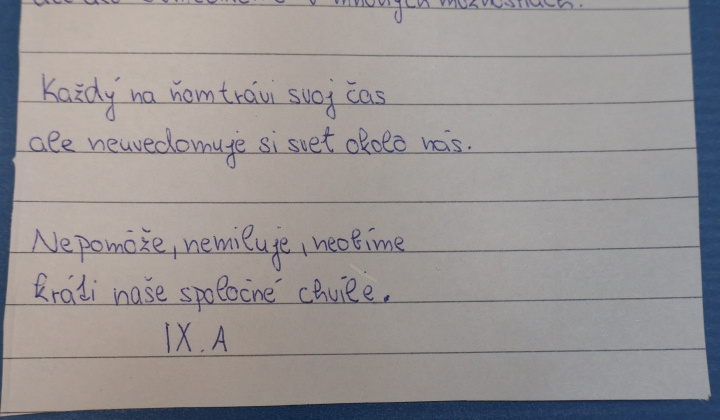 v mnohých možnostiach.
Každý na ňom trávi svoj čas
ale neuvedomuje si svet okolo nás.
Nepomôže, nemiluje, neobíme
kráti naše spoločné chvíle.
IX. A